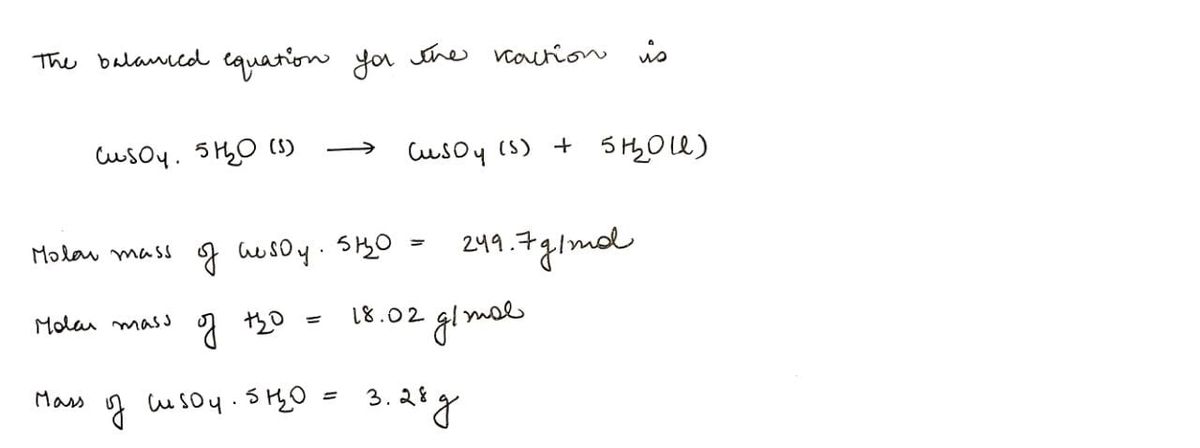 The balanced equation for the reaction is
CuSO4. 5H2O (s) → CuSO4 (s) + 5H2O(l)
Molar mass of CuSO4. 5H2O = 249.7g/mol
Molar mass of H2O = 18.02 g/mol
Mass of CuSO4. 5H2O = 3.28 g